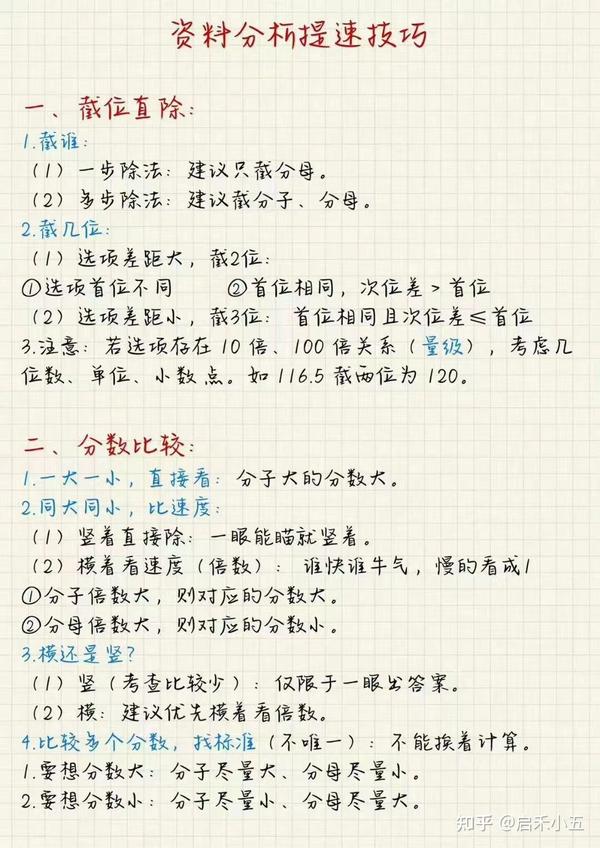 资料分析提速技巧
一、截位直除：
1.截谁：
（1）一步除法：建议只截分母。
（2）多步除法：建议截分子、分母。
2.截几位：
（1）选项差距大，截2位：
①选项首位不同 ②首位相同，次位差＞首位
（2）选项差距小，截3位：首位相同且次位差≤首位
3.注意：若选项存在 10 倍、100 倍关系（量级），考虑几
位数、单位、小数点。如 116.5 截两位为 120。
二、分数比较：
1.一大一小，直接看：分子大的分数大。
2.同大同小，比速度：
（1）竖着直接除：一眼能瞄就竖着。
（2）横着看速度（倍数）：谁快谁牛气，慢的看成1
①分子倍数大，则对应的分数大。
②分母倍数大，则对应的分数小。
3.横还是竖？
（1）竖（考查比较少）：仅限于一眼出答案。
（2）横：建议优先横着看倍数。
4.比较多个分数，找标准（不唯一）：不能挨着计算。
1.要想分数大：分子尽量大、分母尽量小。
2.要想分数小：分子尽量小、分母尽量大。
知乎 @启禾小五